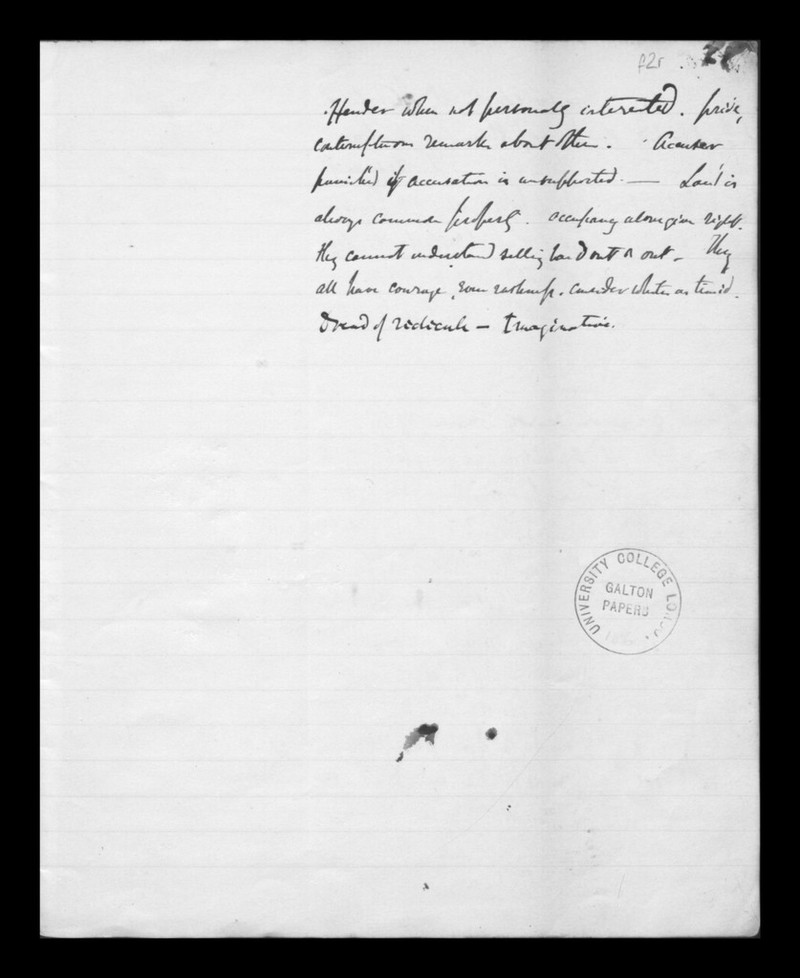 f2r
when not personally interested. private
contemptuous remarks about others. Accuser
punish'd if accusation is unsupported. — Land is
always common property. occupancy alone gives right.
they cannot understand selling land out & out — They
all have courage, some rashness. consider whites as timid.
Dread of ridicule — Imaginative.
UNIVERSITY COLLEGE LONDON
GALTON
PAPERS